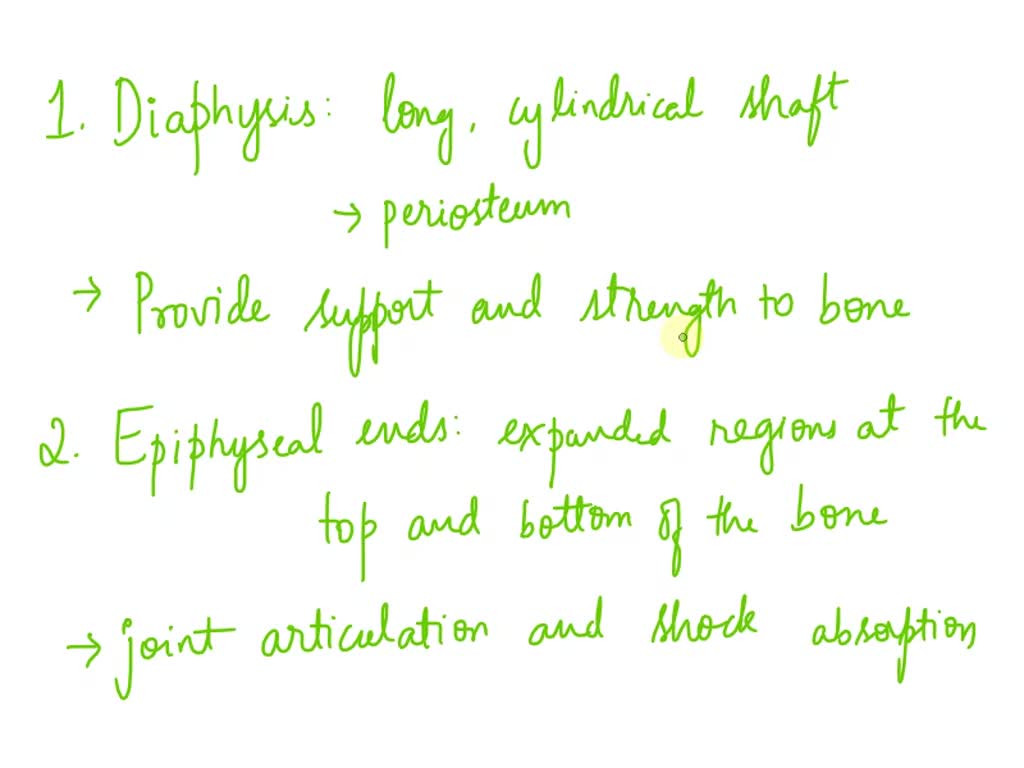 1. Diaphysis: long, cylindrical shaft
→ periosteum
→ Provide support and strength to bone
2. Epiphyseal ends: expanded regions at the
top and bottom of the bone
→ joint articulation and shock absorption